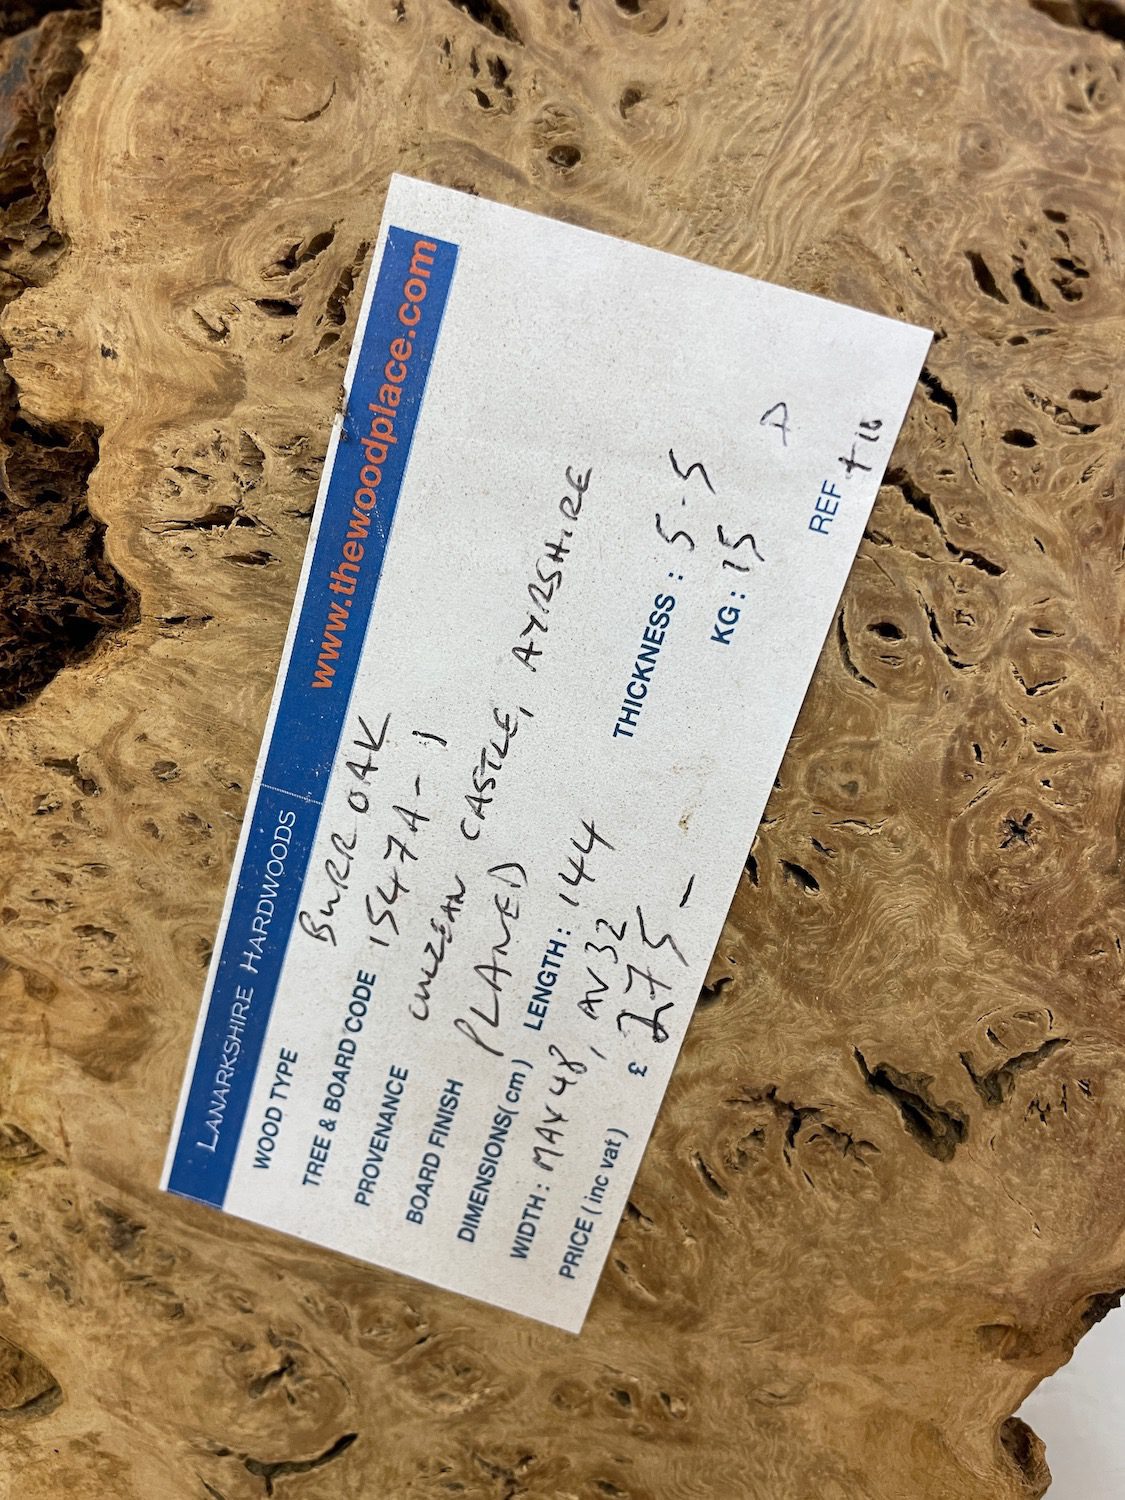 LANARKSHIRE HARDWOODS www.thewoodplace.com
WOOD TYPE BURR OAK
TREE & BOARD CODE 1547A-1
PROVENANCE CULZEAN CASTLE, AYRSHIRE
BOARD FINISH PLANED
DIMENSIONS(cm) LENGTH: 144 THICKNESS: 5.5
WIDTH: MAX 48, AV 32 KG: 15
PRICE (inc vat) £ 275 – REF